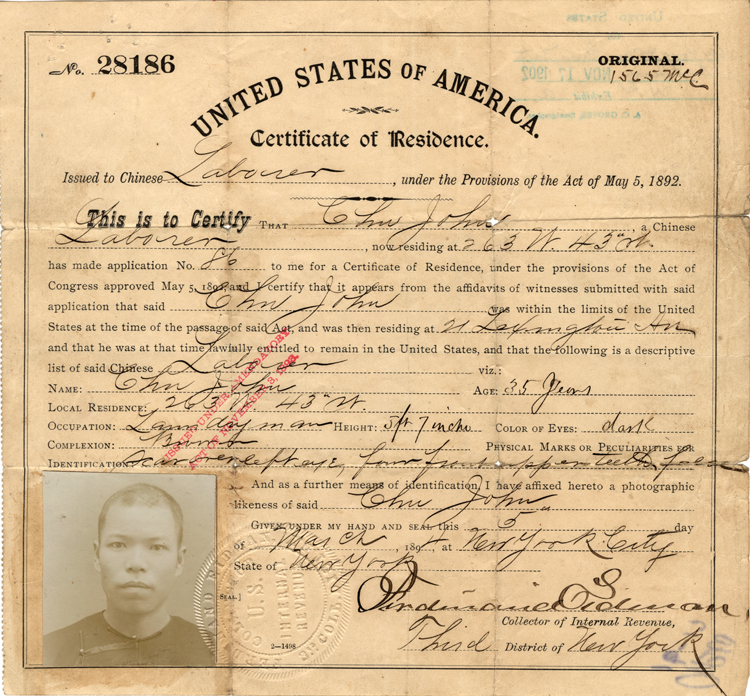 No. 28186
ORIGINAL.
1565 McC
UNITED STATES
NOV 17 1902
UNITED STATES OF AMERICA.
Certificate of Residence.
Issued to Chinese Laborer, under the Provisions of the Act of May 5, 1892.
This is to Certify THAT Chu John, a Chinese
Laborer, now residing at 263 W. 43" St.
has made application No. 86 to me for a Certificate of Residence, under the provisions of the Act of
Congress approved May 5, 1892, and I certify that it appears from the affidavits of witnesses submitted with said
application that said Chu John was within the limits of the United
States at the time of the passage of said Act, and was then residing at 21 Lexington Av
and that he was at that time lawfully entitled to remain in the United States, and that the following is a descriptive
list of said Chinese Laborer viz.:
NAME: Chu John AGE: 35 Years
LOCAL RESIDENCE: 263 W 43" St
OCCUPATION: Laundryman HEIGHT: 5 ft 7 inches COLOR OF EYES: dark
COMPLEXION: PHYSICAL MARKS OR PECULIARITIES FOR
IDENTIFICATION: Scar over left eye, four front upper teeth false
ISSUED UNDER AMENDATORY
ACT OF NOVEMBER 3, 1893.
And as a further means of identification, I have affixed hereto a photographic
likeness of said Chu John
GIVEN UNDER MY HAND AND SEAL this 5" day
of March 1894, at New York City
State of New York
SEAL.]
U.S.
INTERNAL
REVENUE
2—1498
Ferdinand Eidman,
Collector of Internal Revenue,
Third District of New York